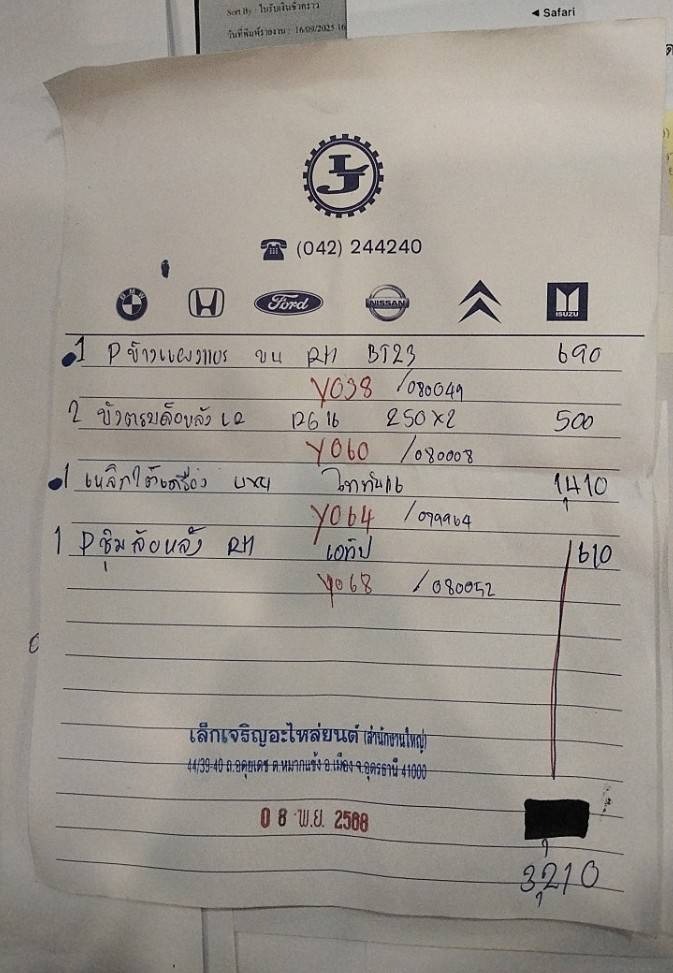 Sort By : ใบรับเงินชั่วคราว
วันที่พิมพ์รายงาน : 16/09/2025 16
◄ Safari
LJ
☎ (042) 244240
BMW H Ford NISSAN ISUZU
1 P ข้างแผงแกร บน RH BT23 690
Y038 /080049
2 LR RG16 250x2 500
Y060 /080008
1 เหล็กใต้เครื่อง 1,410
Y064 /079964
1 P ซุ้มล้อหลัง RH 610
Y068 /080052
เล็กเจริญอะไหล่ยนต์ (สำนักงานใหญ่)
44/39-40 ถ.อดุยเดช ต.หมากแข้ง อ.เมือง จ.อุดรธานี 41000
08 พ.ย. 2568
3,210